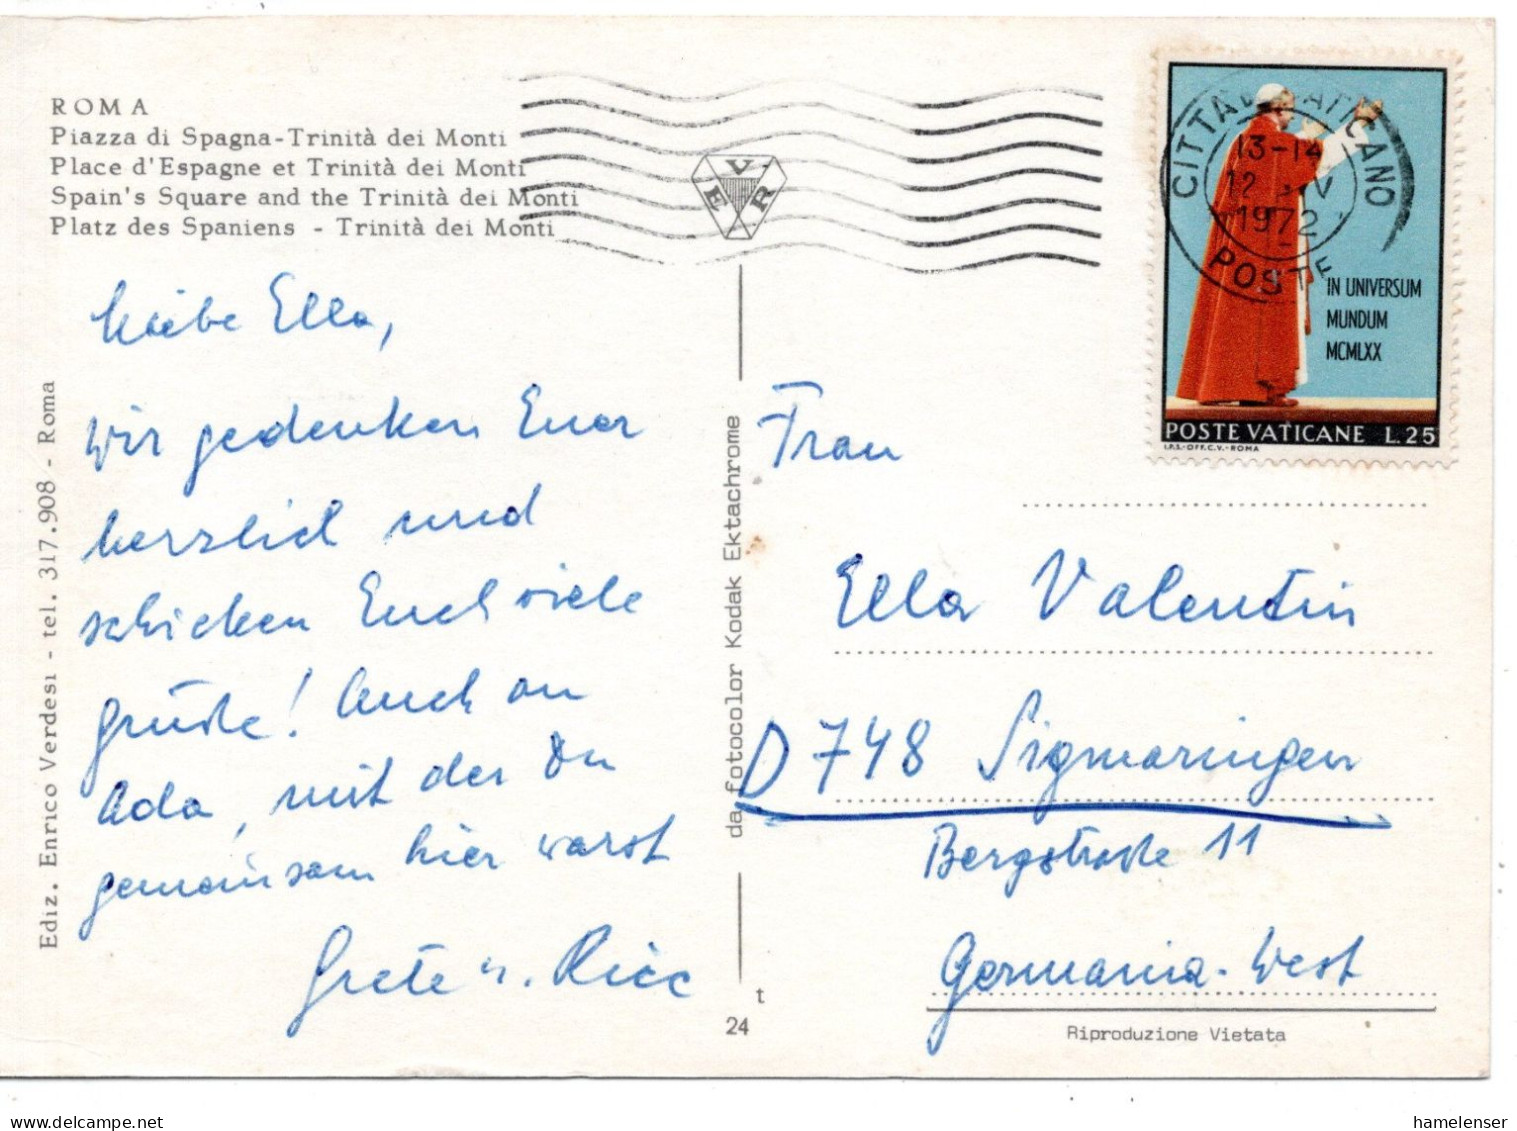 ROMA
Piazza di Spagna-Trinità dei Monti
Place d'Espagne et Trinità dei Monti
Spain's Square and the Trinità dei Monti
Platz des Spaniens - Trinità dei Monti
EVR
CITTÀ DEL VATICANO
13-14
12
1972
POSTE
IN UNIVERSUM
MUNDUM
MCMLXX
POSTE VATICANE L.25
I.P.S.-OFF.C.V.-ROMA
Liebe Ella,
wir gedenken Euer
herzlich und
schicken Euch viele
Grüße! Auch an
Ada, mit der Du
gemeinsam hier warst
Grete u.
Ediz. Enrico Verdesi - tel. 317.908 - Roma
da fotocolor Kodak Ektachrome
Frau
Ella Valentin
D 748 Sigmaringen
Bergstraße 11
Germania-West
t
24
Riproduzione Vietata
hamelenser